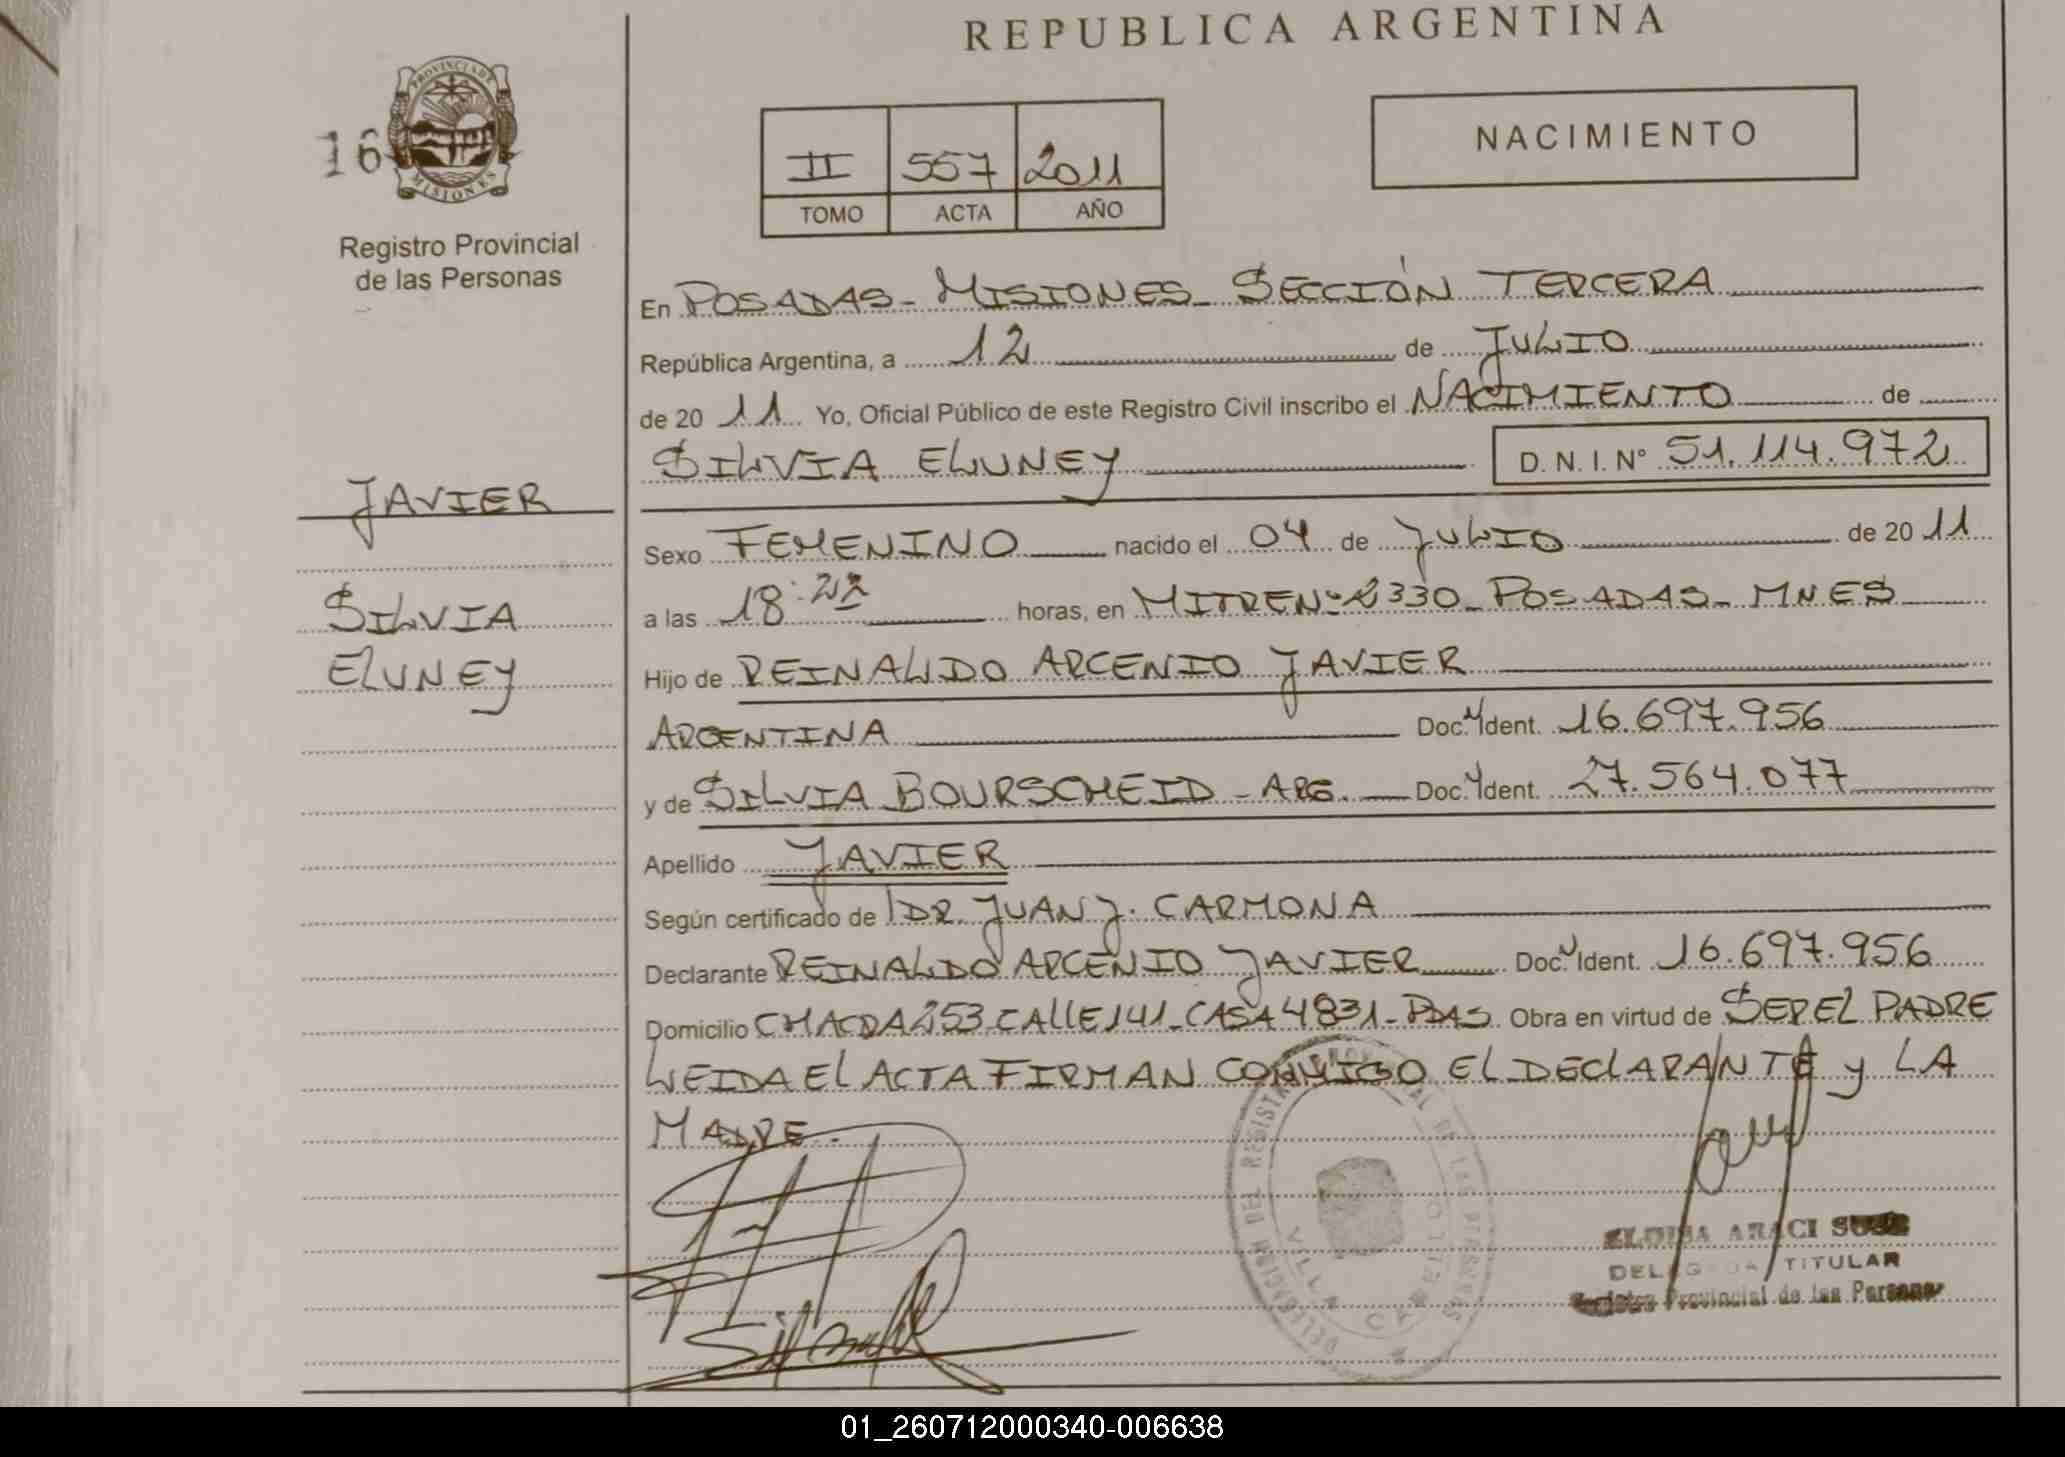 REPUBLICA ARGENTINA
PROVINCIA DE
MISIONES
16
Registro Provincial
de las Personas
II 557 2011
TOMO ACTA AÑO
NACIMIENTO
En POSADAS - MISIONES - SECCIÓN TERCERA
República Argentina, a 12 de JULIO
de 20 11 Yo, Oficial Público de este Registro Civil inscribo el NACIMIENTO de
SILVIA ELUNEY D. N. I. N° 51.114.972
JAVIER
SILVIA
ELUNEY
Sexo FEMENINO nacido el 04 de JULIO de 20 11
a las 18: horas, en MITRE Nº 2330 - POSADAS - MNES
Hijo de REINALDO ARCENIO JAVIER
ARGENTINA Doc. Ident. 16.697.956
y de SILVIA BOURSCHEID - ARG. Doc. Ident. 27.564.077
Apellido JAVIER
Según certificado de DR. JUAN J. CARMONA
Declarante REINALDO ARCENIO JAVIER Doc. Ident. 16.697.956
Domicilio CHACRA 253 - CALLE 141 - CASA 4831 - PDAS Obra en virtud de SER EL PADRE
LEIDA EL ACTA FIRMAN CONMIGO EL DECLARANTE y LA
MADRE.
DELEGACION DEL REGISTRO PROVINCIAL DE LAS PERSONAS
VILLA CABELLO
ARACI
DELEGADA TITULAR
Registro Provincial de las Personas
01_260712000340-006638